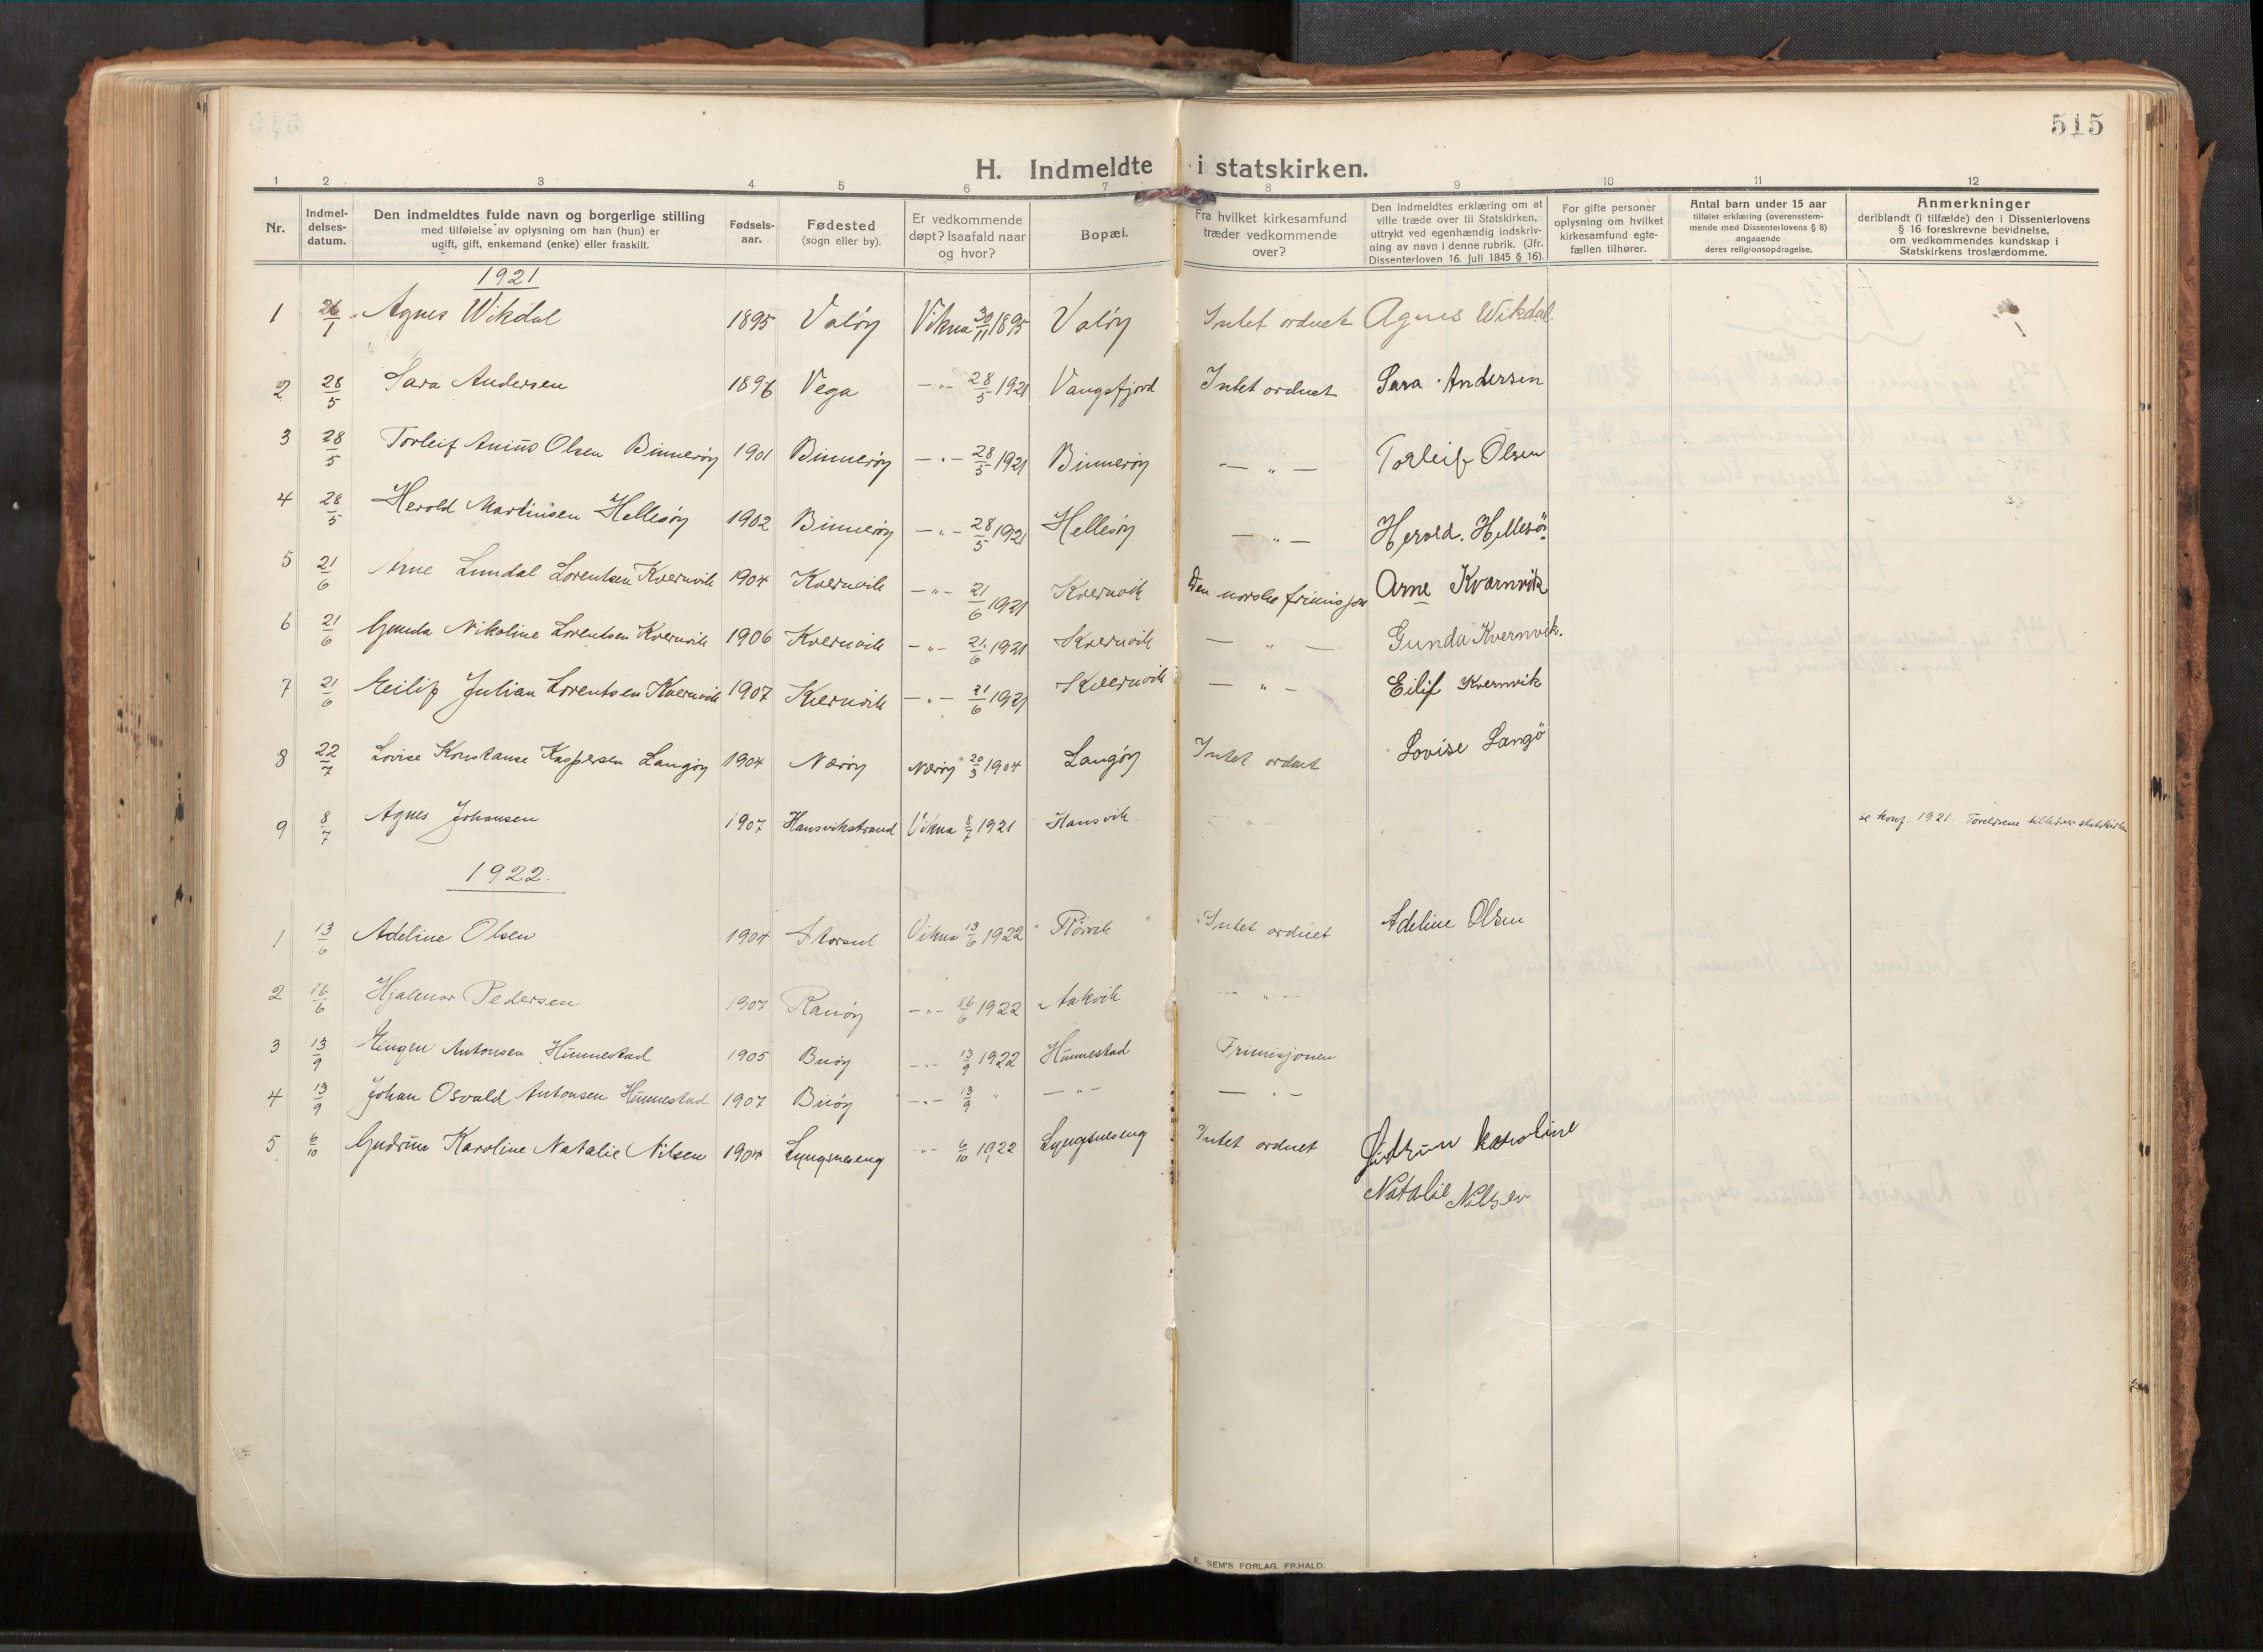 515
H. Indmeldte i statskirken.
1 2 3 4 5 6 7 8 9 10 11 12
Nr.
Indmel-
delses-
datum.
Den indmeldtes fulde navn og borgerlige stilling
med tilføielse av oplysning om han (hun) er
ugift, gift, enkemand (enke) eller fraskilt.
Fødsels-
aar.
Fødested
(sogn eller by).
Er vedkommende
døpt? Isaafald naar
og hvor?
Bopæl.
Fra hvilket kirkesamfund
træder vedkommende
over?
Den indmeldtes erklæring om at
ville træde over til Statskirken,
uttrykt ved egenhændig indskriv-
ning av navn i denne rubrik. (Jfr.
Dissenterloven 16. juli 1845 § 16).
For gifte personer
oplysning om hvilket
kirkesamfund egte-
fællen tilhører.
Antal barn under 15 aar
tilføiet erklæring (overensstem-
mende med Dissenterlovens § 8)
angaaende
deres religionsopdragelse.
Anmerkninger
deriblandt (i tilfælde) den i Dissenterlovens
§ 16 foreskrevne bevidnelse,
om vedkommendes kundskap i
Statskirkens troslærdomme.
1921
1 26/1 Agnes Wikdal 1895 Valöy Vikna 30/11 1895 Valöy Intet ordnet Agnes Wikdal
2 28/5 Sara Andersen 1896 Vega —"— 28/5 1921 Vangsfjord Intet ordnet Sara Andersen
3 28/5 Torleif Olsen Binneröy 1901 Binneröy —"— 28/5 1921 Binneröy — " — Torleif Olsen
4 28/5 Herold Martinsen Hellesöy 1902 Binneröy —"— 28/5 1921 Hellesöy — " — Herold. Hellesö.
5 21/6 Arne Lundal Lorentsen Kvernvik 1904 Kvernvik —"— 21/6 1921 Kvernvik Den norske frimisjon Arne Kvarnvik
6 21/6 Gunda Nikoline Lorentsen Kvernvik 1906 Kvernvik —"— 21/6 1921 Kvernvik — " — Gunda Kvernvik.
7 21/6 Eilif Julian Lorentsen Kvernvik 1907 Kvernvik —"— 21/6 1921 Kvernvik — " — Eilif Kvernvik
8 22/7 Lovise Konstanse Kaspersen Langöy 1904 Næröy Næröy 20/3 1904 Langöy Intet ordnet Lovise Langö
9 8/7 Agnes Johansen 1907 Hansvikstrand Vikna 8/7 1921 Hansvik — " — se konf. 1921. Foreldrene tilhörer statskirken
1922.
1 13/6 Adeline Olsen 1904 Vikna 13/6 1922 Rörvik Intet ordnet Adeline Olsen
2 16/6 Hjalmar Pedersen 1907 Ramöy —"— 16/6 1922 Aakvik — " —
3 13/9 Antonsen Hunnestad 1905 Buöy —"— 13/9 1922 Hunnestad Frimisjonen
4 13/9 Johan Osvald Antonsen Hunnestad 1907 Buöy —"— 13/9 " — " — — " —
5 6/10 Gudrun Karoline Natalie Nilsen 1904 Lyngsneseng —"— 6/10 1922 Lyngsneseng Intet ordnet Gudrun Karoline
Natalie Nilsen
E. SEM'S FORLAG, FR.HALD.